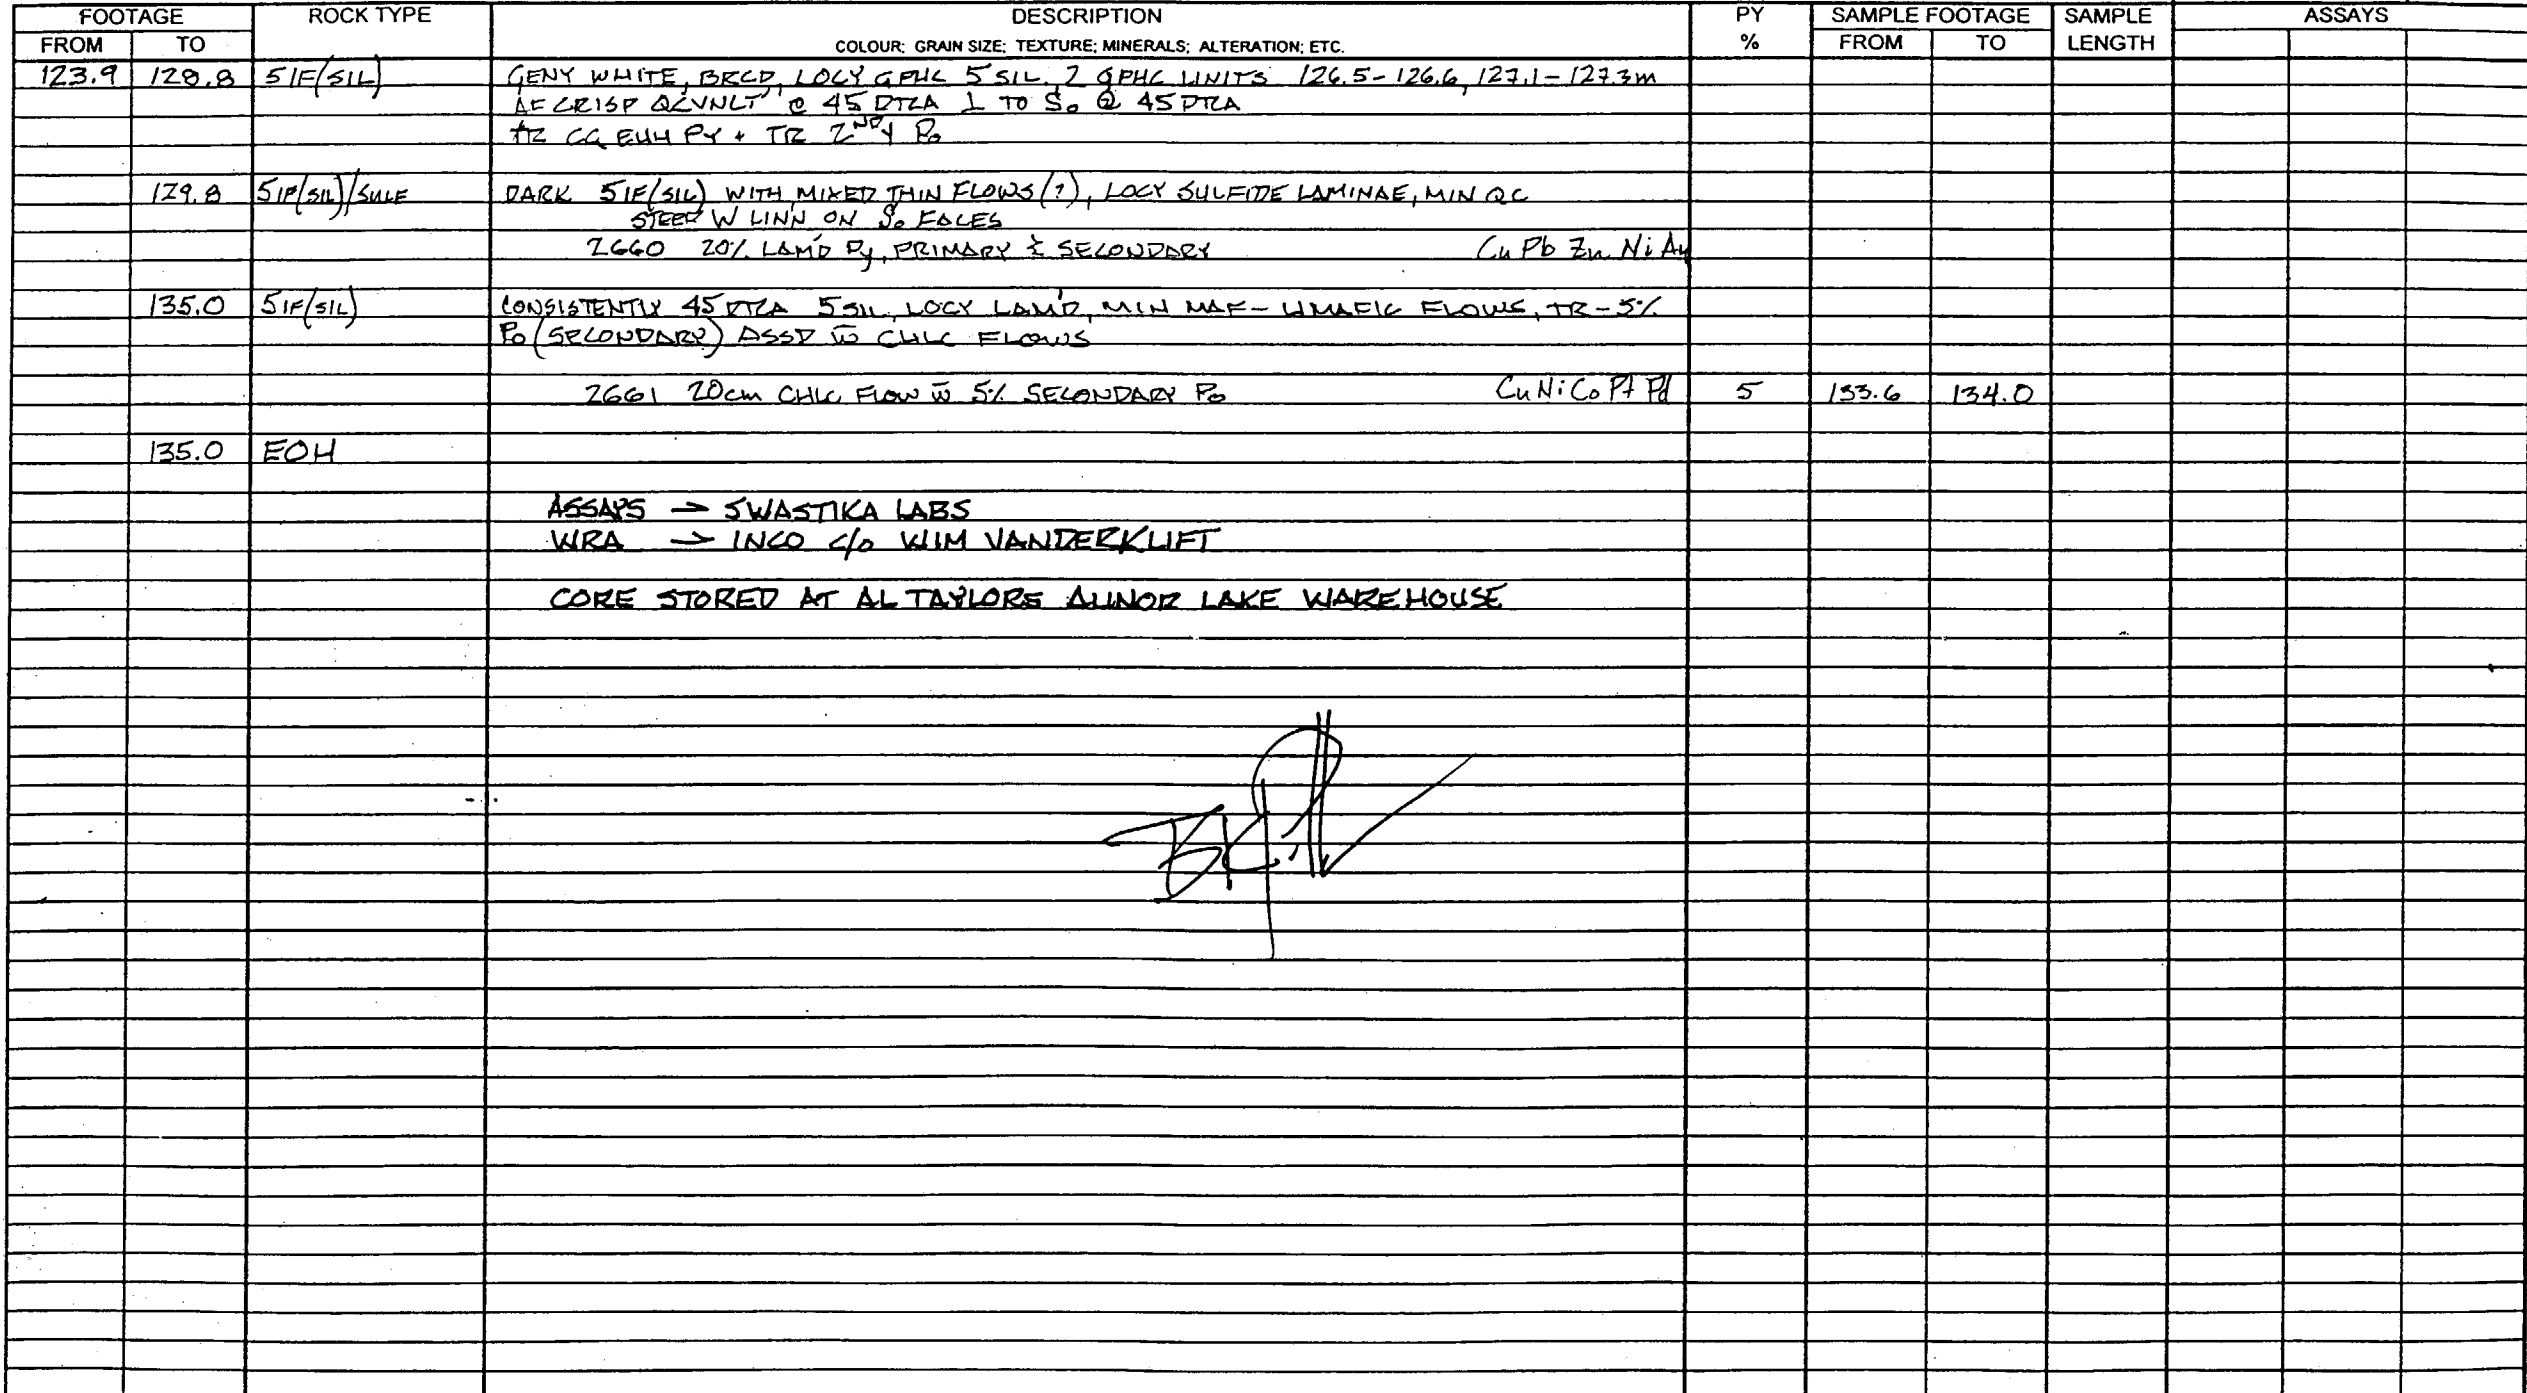 FOOTAGE ROCK TYPE DESCRIPTION PY SAMPLE FOOTAGE SAMPLE ASSAYS
FROM TO COLOUR; GRAIN SIZE; TEXTURE; MINERALS; ALTERATION; ETC. % FROM TO LENGTH
123.9 128.8 5IF(SIL) GENY WHITE, BRCD, LOCY GPHC 5 SIL. 2 GPHC UNITS 126.5-126.6, 127.1-127.3m
AF CRISP QCVNLT @ 45 DTCA ⊥ TO So @ 45 DTCA
TR CG EUH PY + TR 2NDY Po
129.8 5IF(SIL)/SULF DARK 5IF(SIL) WITH MIXED THIN FLOWS(?), LOCY SULFIDE LAMINAE, MIN QC
STEEP W LINN ON So FACES
2660 20% LAM'D Py, PRIMARY & SECONDARY Cu Pb Zn Ni Au
135.0 5IF(SIL) CONSISTENTLY 45 DTCA 5SIL, LOCY LAM'D, MIN MAF-UMAFIC FLOWS, TR-5%
Po (SECONDARY) ASSD W̄ CHLC FLOWS
2661 20cm CHLC FLOW W̄ 5% SECONDARY Po Cu Ni Co Pt Pd 5 133.6 134.0
135.0 EOH
ASSAYS → SWASTIKA LABS
WRA → INCO c/o WIM VANDERKLIFT
CORE STORED AT AL TAYLORS AUNOR LAKE WAREHOUSE